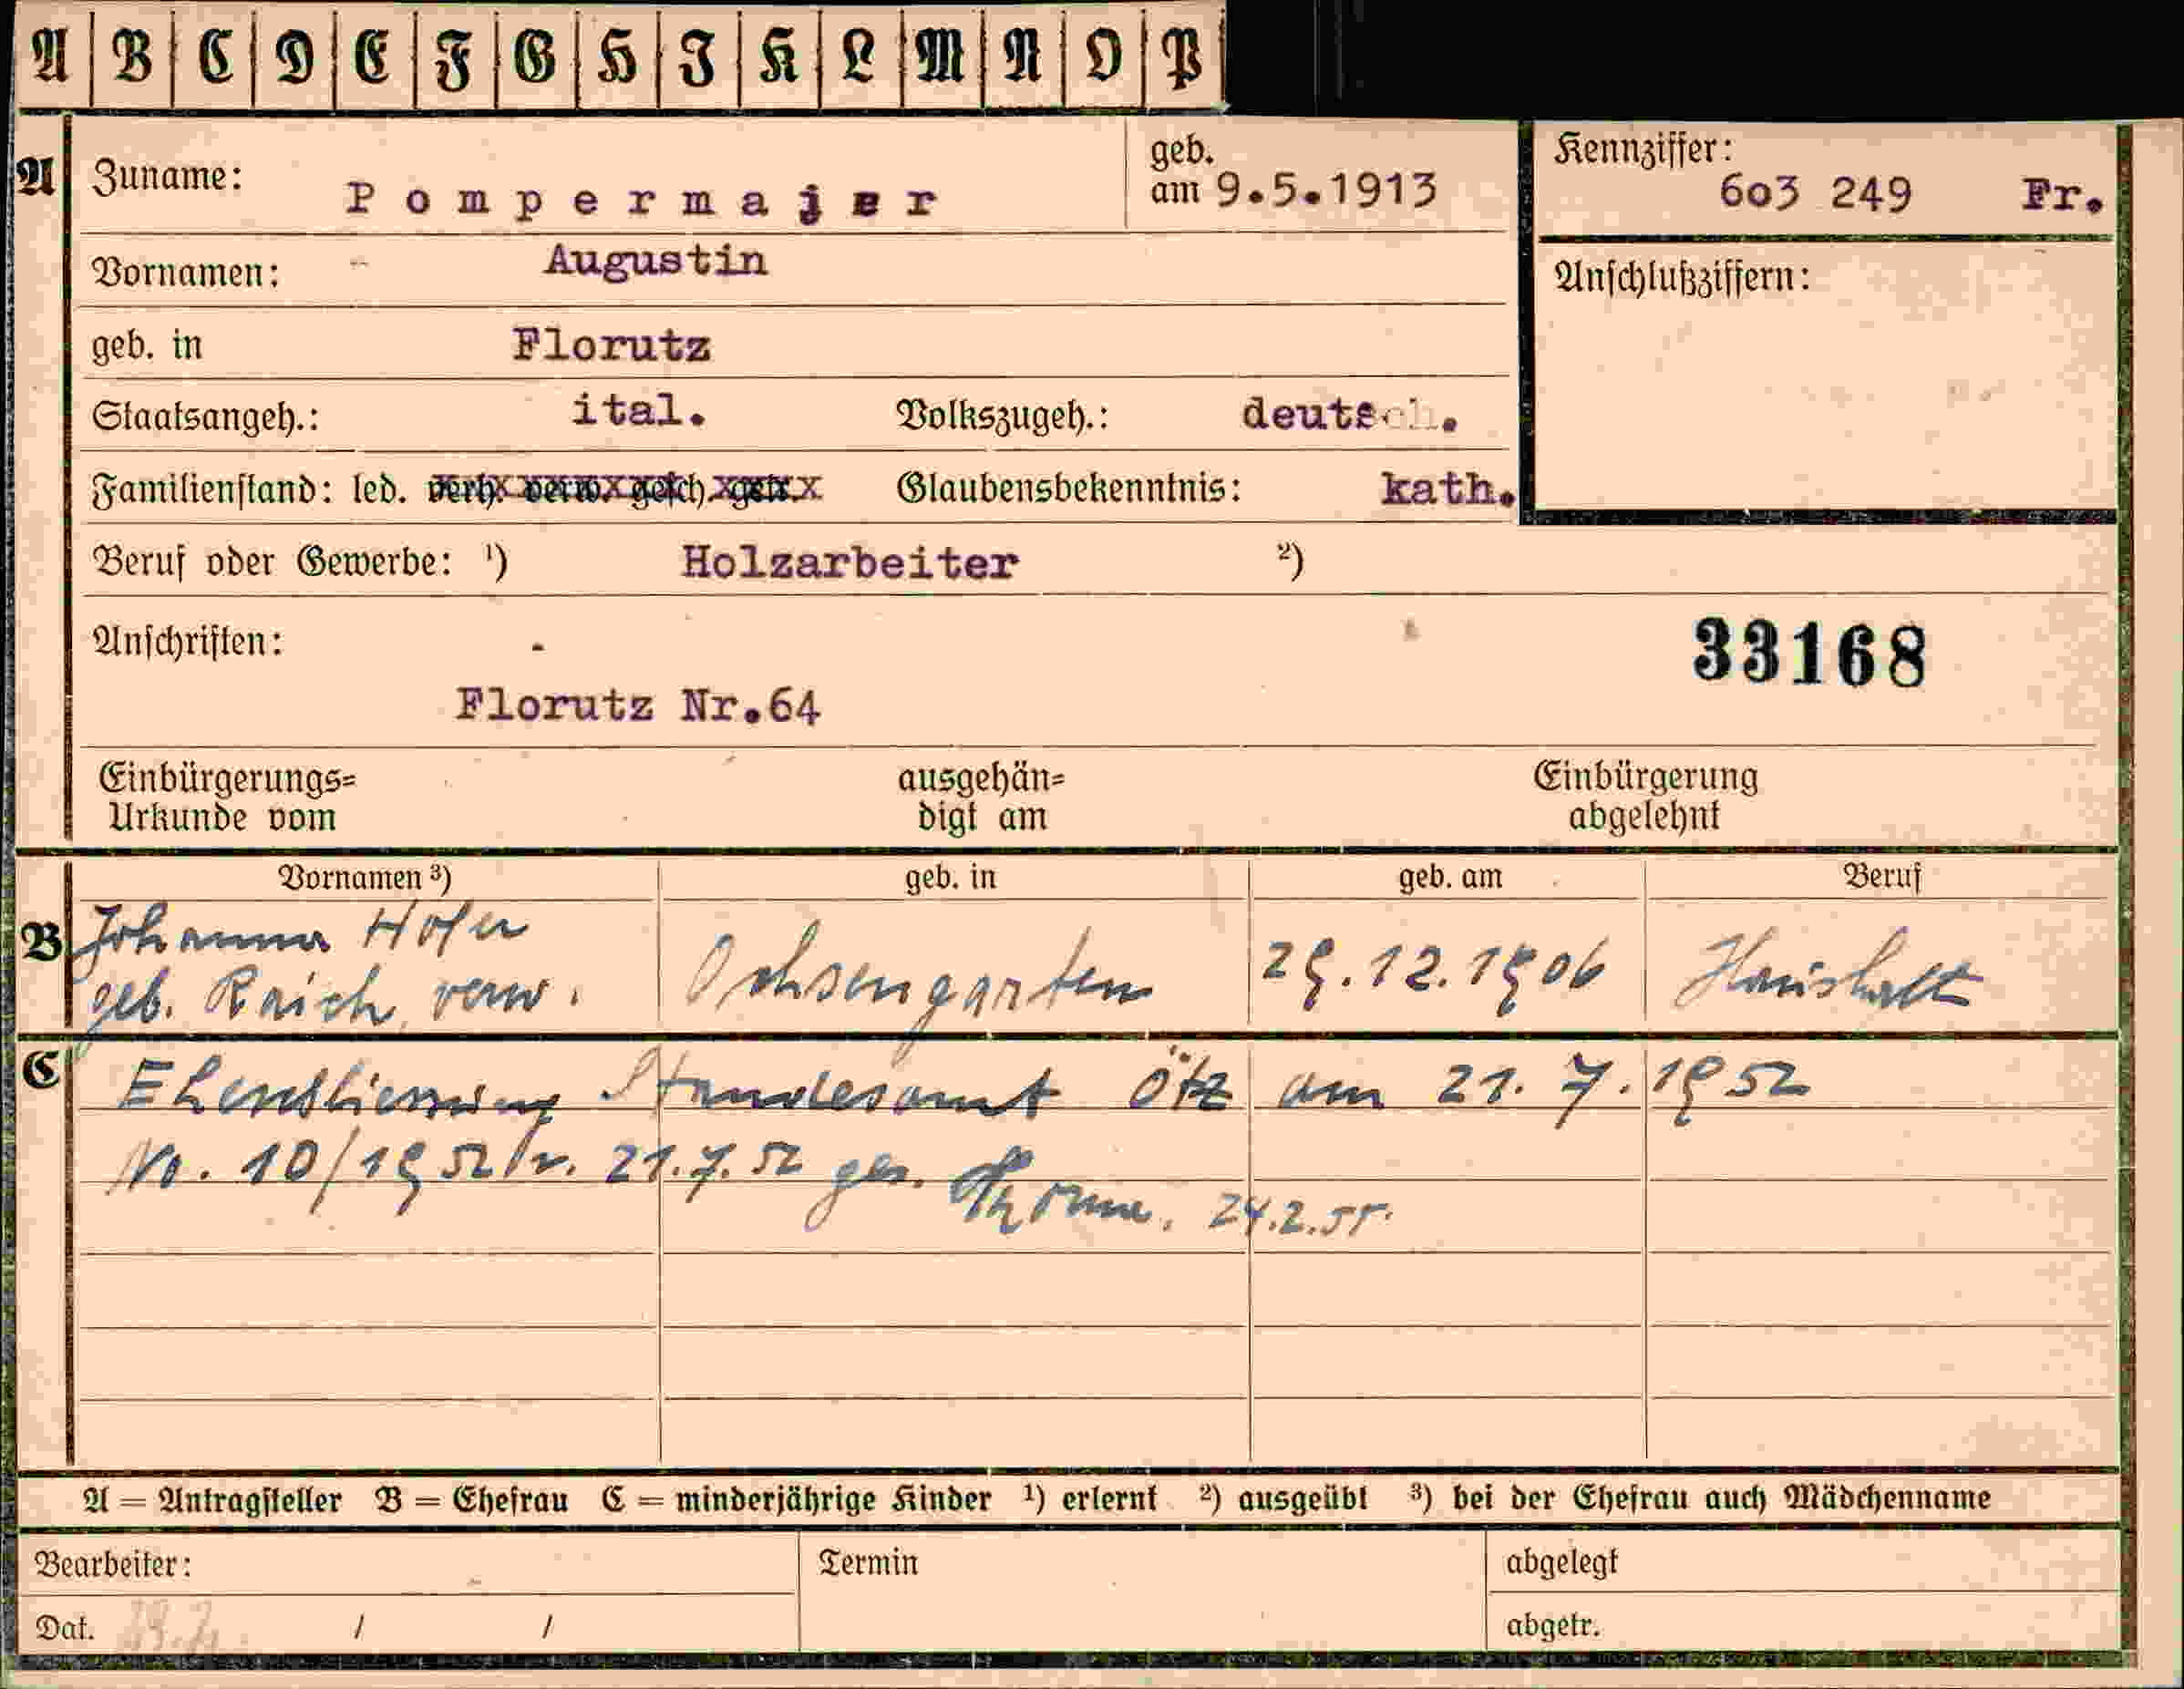 A B C D E F G H I K L M N O P
A Zuname: Pompermajer geb. am 9.5.1913 Kennziffer: 603 249 Fr.
Vornamen: Augustin Anschlußziffern:
geb. in Florutz
Staatsangeh.: ital. Volkszugeh.: deutsch.
Familienstand: led. verh. verw. gesch. getr. Glaubensbekenntnis: kath.
Beruf oder Gewerbe: ¹) Holzarbeiter ²)
Anschriften: 33168
Florutz Nr.64
Einbürgerungs= ausgehän= Einbürgerung
Urkunde vom digt am abgelehnt
Vornamen ³) geb. in geb. am Beruf
B Johanna Hofer
geb. Raich, verw. Ochsengarten 29.12.1906 Haushalt
C Eheschliessung Standesamt Ötz am 21.7.1952
Nr. 10/1952/v. 21.7.52 ges. 24.2.55.
A = Antragsteller B = Ehefrau C = minderjährige Kinder ¹) erlernt ²) ausgeübt ³) bei der Ehefrau auch Mädchenname
Bearbeiter: Termin abgelegt
Dat. / / abgetr.